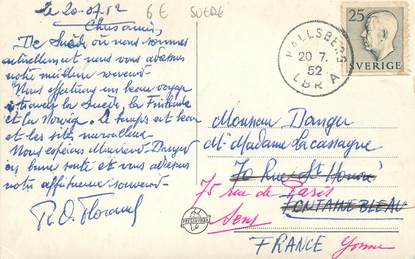 Le 20-07-52
6€ SUEDE
Chers amis,
De Suède où nous sommes
actuellement nous vous adressons
notre meilleur souvenir
Nous effectuons un beau voyage
à travers la Suède, la Finlande
et la Norvège. Le temps est beau
et les sites merveilleux
Nous espérons Monsieur Danger
en bonne santé et vous adressons
notre affectueux souvenir
HALLSBERG
20 7.
52
LBR A
25
SVERIGE
Monsieur Danger
Mr Madame Lacassagne
70 Rue St Honoré
75 rue de Paris
FONTAINEBLEAU
Sens
FRANCE Yonne